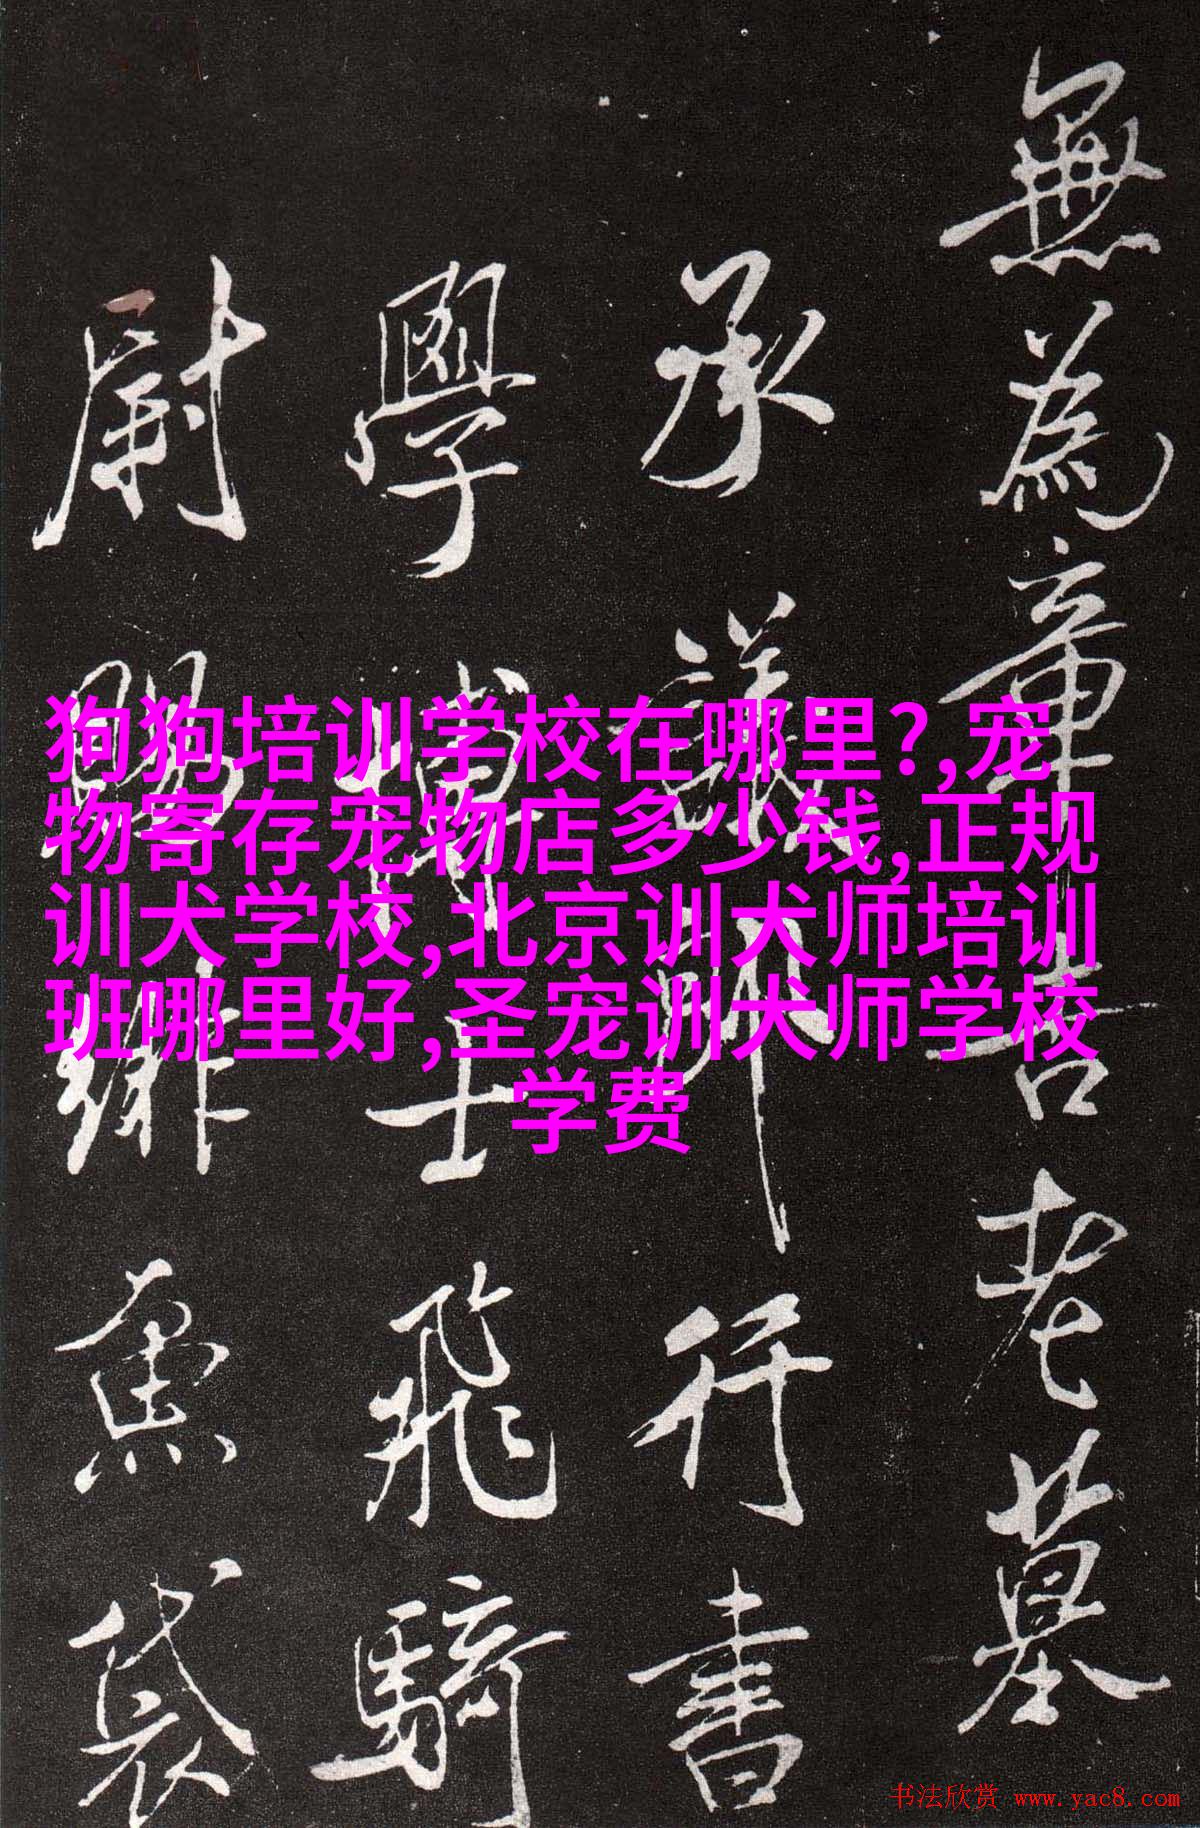 無為章吉老墓
承議郎行書
學博士飛騎
尉賜緋魚袋
狗狗培训学校在哪里?,宠
物寄存宠物店多少钱,正规
训犬学校,北京训犬师培训
班哪里好,圣宠训犬师学校
学费
书法欣赏 www.yac8.com